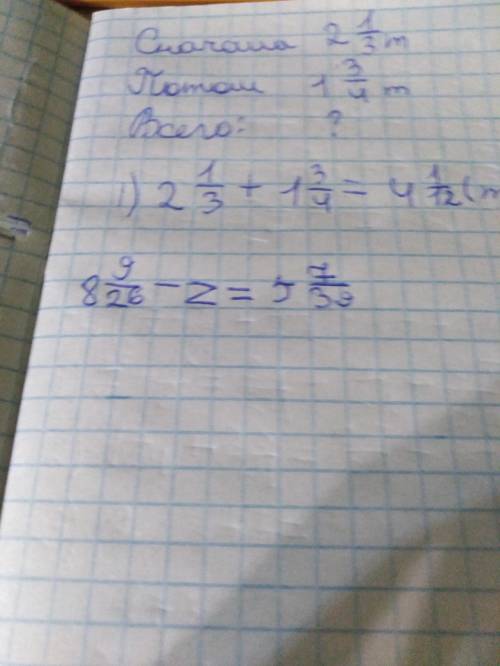 Сначала 2 1/3 т
Потом 1 3/4 т
Всего: ?
1) 2 1/3 + 1 3/4 = 4 1/12 (т
=
8 9/26 - z = 5 7/39